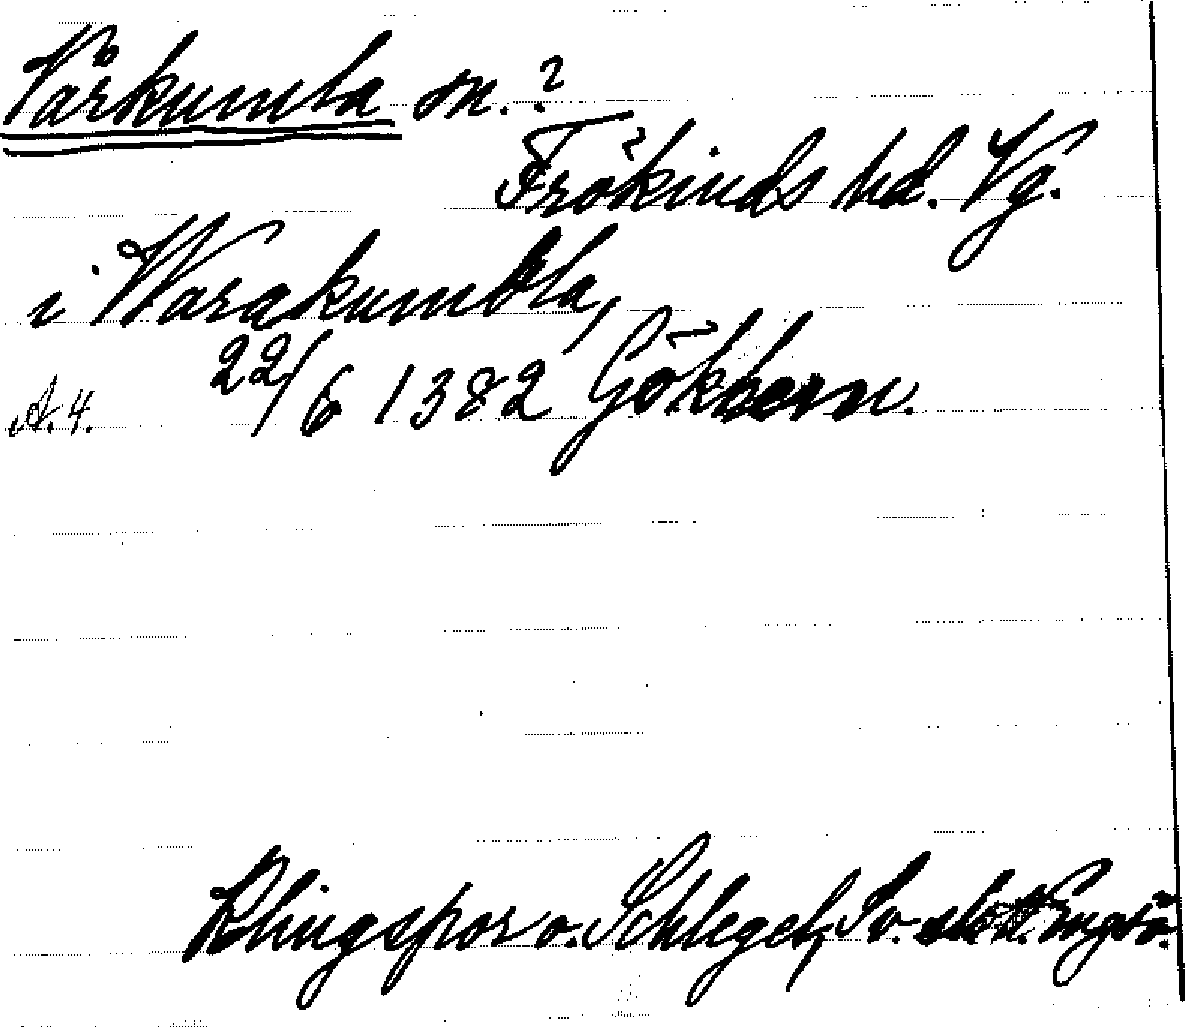 Vårkumla sn.?
Frökinds hd. Vg.
i Warakumbla,
A. 4. 22/6 1382 Gökhem.
Klingspor o. Schlegel, Sv. slott. Engsö.